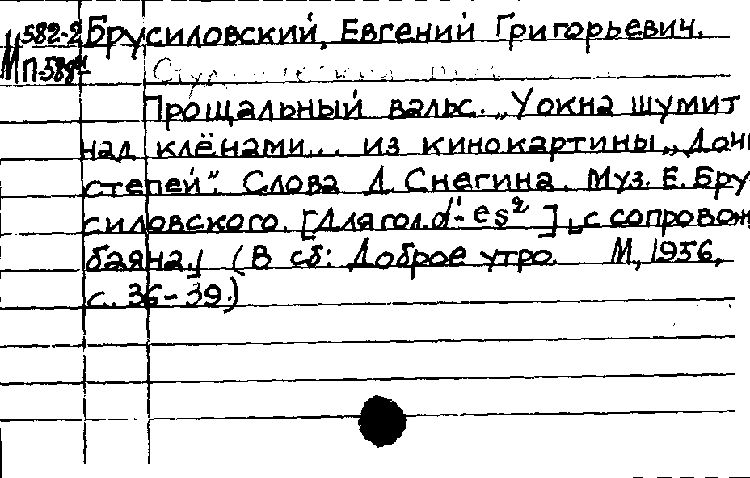 582-2 Брусиловский, Евгений Григорьевич.
Прощальный вальс. „У окна шумит
над клёнами... из кинокартины „Дочь
степей". Слова Д. Снегина. Муз. Е. Бру
силовского. [Для гол. d¹-es² ] „с сопровож
баяна.) (В сб: Доброе утро. М, 1956,
с. 36-39.)